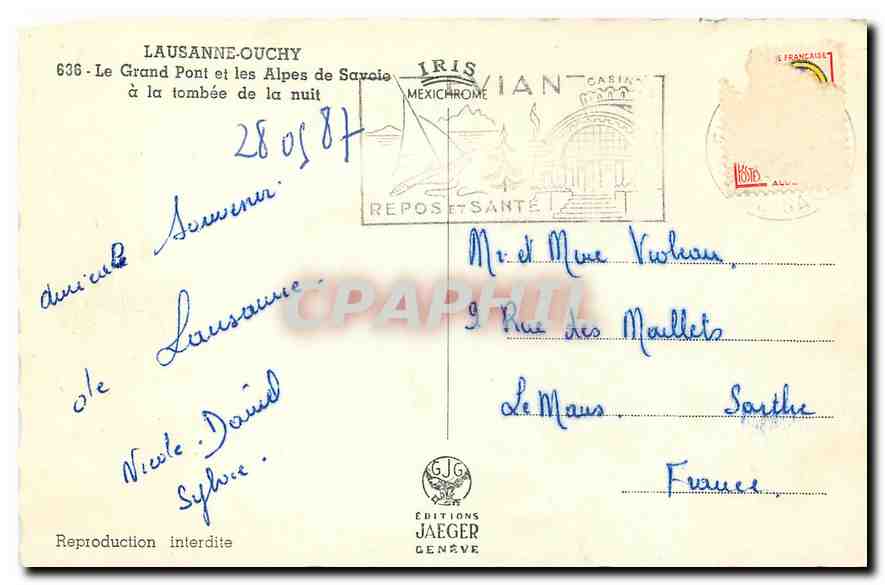 LAUSANNE-OUCHY
636 - Le Grand Pont et les Alpes de Savoie
à la tombée de la nuit
IRIS
MEXICHROME
VIAN
CASIN
REPOS ET SANTÉ
E FRANÇAISE
POSTES
28 05 87
amicale Souvenir.
de Lausanne.
Nicole. Daniel
Sylvie.
CPAPHIL
Mr et Mme
9 Rue des Maillets
Le Mans. Sarthe
France.
GJG
ÉDITIONS
JAEGER
GENÈVE
Reproduction interdite